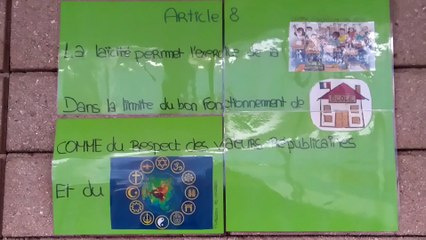 Article 8
La laïcité permet l'exercice de la
Dans la limite du bon fonctionnement de
ECOLE
COMME du Respect des valeurs Républicaines
Et du